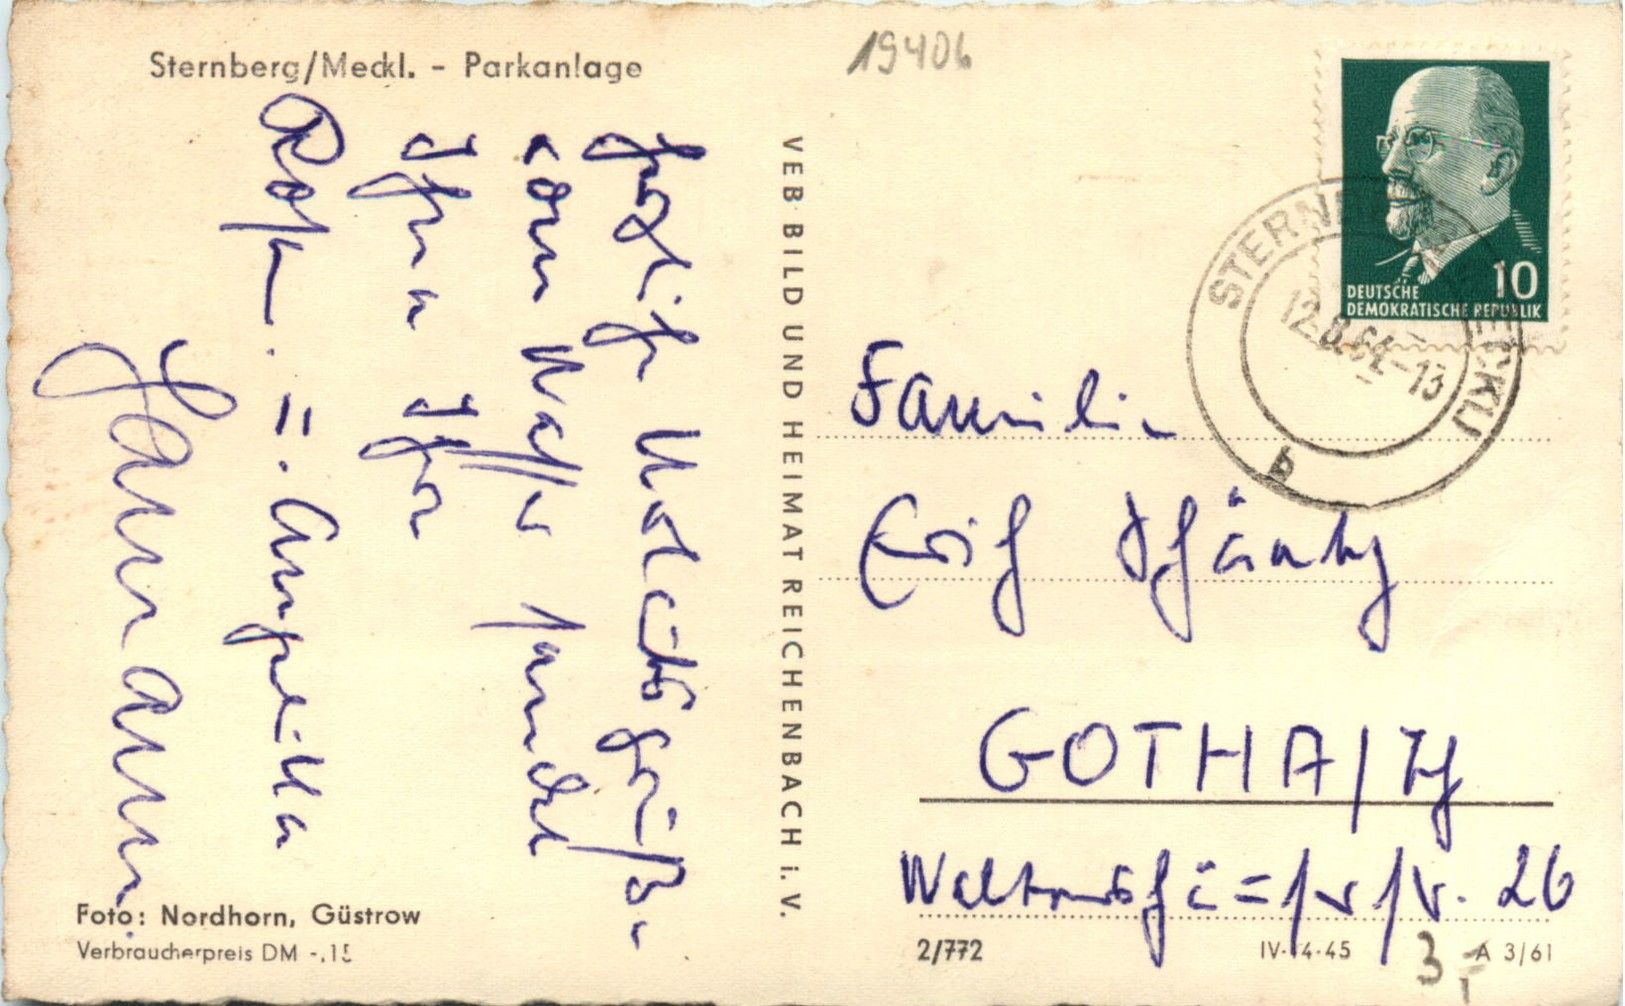 Sternberg/Meckl. - Parkanlage
19406
DEUTSCHE
DEMOKRATISCHE REPUBLIK
10
STERNBERG (MECKL)
12.8.64-13
b
Herzliche Urlaubsgrüße
vom Wasser sendet
Ihnen Ihre
= Angelika
Hamann.
VEB BILD UND HEIMAT REICHENBACH i. V.
Familie
Erich
GOTHA/Th
Waltershäuserstr. 26
Foto: Nordhorn, Güstrow
Verbraucherpreis DM -.15
2/772
IV-14-45
A 3/61
3,-